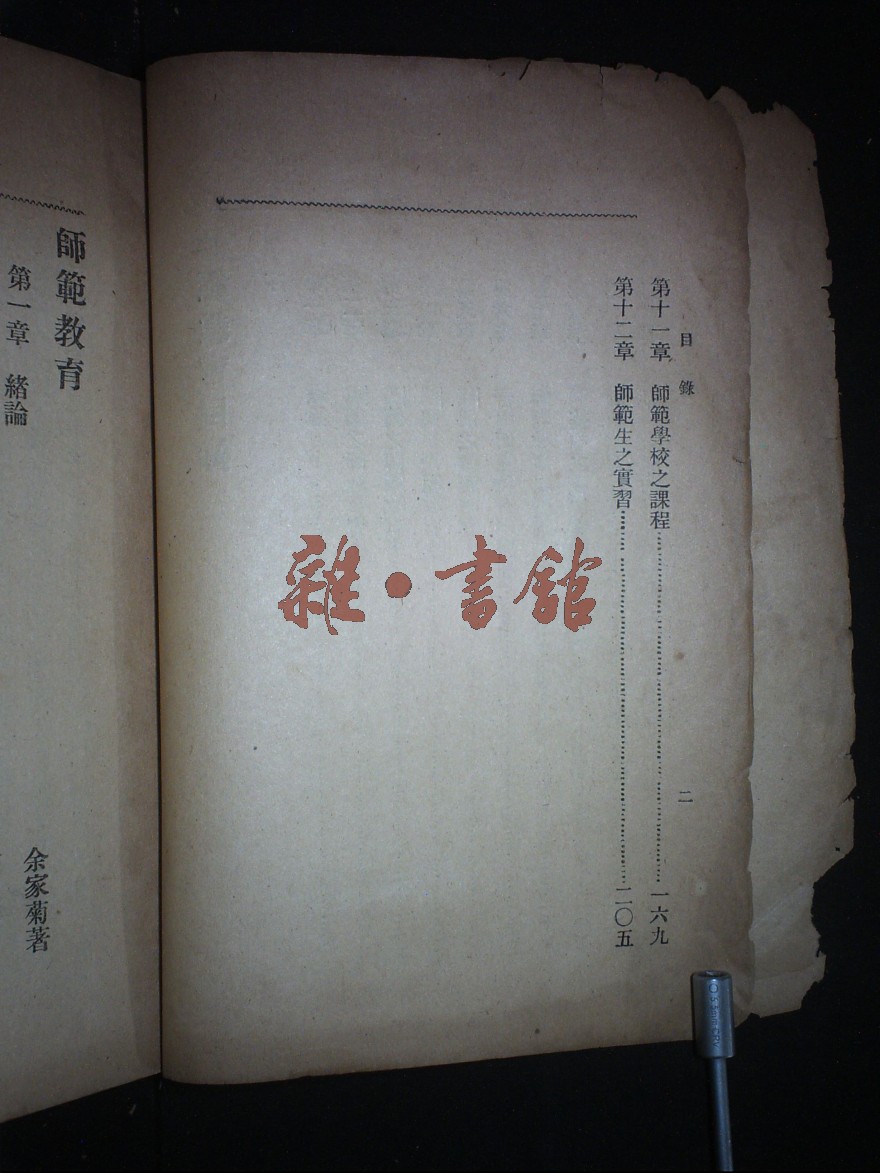 目錄
第十一章 師範學校之課程……一六九
第十二章 師範生之實習……二〇五
二
師範教育
第一章 緒論
余家菊著
雜•書館